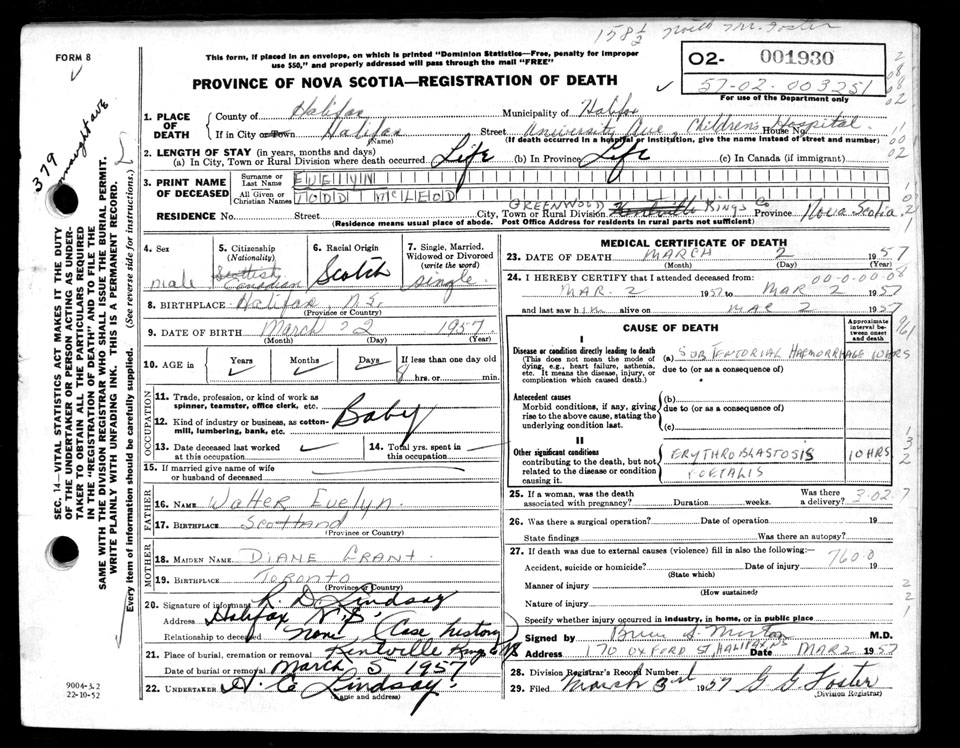 158 1/2 North Mr. Foster
FORM 8
This form, if placed in an envelope, on which is printed "Dominion Statistics—Free, penalty for improper
use $50," and properly addressed will pass through the mail "FREE"
PROVINCE OF NOVA SCOTIA—REGISTRATION OF DEATH
O2- 001930
57-02-003251
For use of the Department only
379 Connaught ave
SEC. 14—VITAL STATISTICS ACT MAKES IT THE DUTY
OF THE UNDERTAKER OR PERSON ACTING AS UNDER-
TAKER TO OBTAIN ALL THE PARTICULARS REQUIRED
IN THE "REGISTRATION OF DEATH" AND TO FILE THE
SAME WITH THE DIVISION REGISTRAR WHO SHALL ISSUE THE BURIAL PERMIT.
WRITE PLAINLY WITH UNFADING INK. THIS IS A PERMANENT RECORD.
Every item of information should be carefully supplied. (See reverse side for instructions.)
1. PLACE OF DEATH
County of Halifax Municipality of Halifax
If in City or Town Halifax Street University Ave, Children's House No. Hospital.
(Name) (If death occurred in a hospital or institution, give the name instead of street and number)
2. LENGTH OF STAY (in years, months and days)
(a) In City, Town or Rural Division where death occurred Life (b) In Province Life (c) In Canada (if immigrant)
3. PRINT NAME OF DECEASED
Surname or Last Name EVELYN
All Given or Christian Names TODD McLEOD
RESIDENCE No. Street City, Town or Rural Division GREENWOOD Kentville Kings Co Province Nova Scotia
(Residence means usual place of abode. Post Office Address for residents in rural parts not sufficient)
4. Sex male
5. Citizenship (Nationality) Scottish Canadian
6. Racial Origin Scotch
7. Single, Married, Widowed or Divorced (write the word) Single
8. BIRTHPLACE Halifax, N.S.
(Province or Country)
9. DATE OF BIRTH March 2 1957
(Month) (Day) (Year)
10. AGE in Years Months Days If less than one day old
8 hrs. or min.
OCCUPATION
11. Trade, profession, or kind of work as
spinner, teamster, office clerk, etc.
12. Kind of industry or business, as cotton-
mill, lumbering, bank, etc. Baby
13. Date deceased last worked
at this occupation
14. Total yrs. spent in
this occupation
15. If married give name of wife
or husband of deceased
FATHER
16. NAME Walter Evelyn.
17. BIRTHPLACE Scotland
(Province or Country)
MOTHER
18. MAIDEN NAME DIANE GRANT.
19. BIRTHPLACE TORONTO
(Province or Country)
20. Signature of informant R D Lindsay
Address Halifax N.S.
Relationship to deceased None (Case history)
21. Place of burial, cremation or removal Kentville Kings Co NS
Date of burial or removal March 5 1957
22. UNDERTAKER A. C. Lindsay.
(Name and address)
9004-3.2
22-10-52
MEDICAL CERTIFICATE OF DEATH
23. DATE OF DEATH MARCH 2 1957
(Month) (Day) (Year)
24. I HEREBY CERTIFY that I attended deceased from:
00-0-00-08
MAR. 2 1957 to MAR 2 1957
and last saw him alive on MAR 2 1957
CAUSE OF DEATH
Approximate interval between onset and death
I
Disease or condition directly leading to death
(This does not mean the mode of
dying, e.g., heart failure, asthenia,
etc. It means the disease, injury, or
complication which caused death.)
(a) SUBTENTORIAL HAEMORRHAGE 10HRS
due to (or as a consequence of)
Antecedent causes
Morbid conditions, if any, giving
rise to the above cause, stating the
underlying condition last.
(b)
due to (or as a consequence of)
(c)
II
Other significant conditions
contributing to the death, but not
related to the disease or condition
causing it.
ERYTHROBLASTOSIS FOETALIS 10HRS
25. If a woman, was the death
associated with pregnancy? Duration weeks. Was there a delivery? 3-02-7
26. Was there a surgical operation? Date of operation 19
State findings Was there an autopsy?
27. If death was due to external causes (violence) fill in also the following:— 760.0
Accident, suicide or homicide? Date of injury 19
(State which)
Manner of injury
(How sustained)
Nature of injury
Specify whether injury occurred in industry, in home, or in public place
Signed by Brien S. Morton M.D.
Address 170 OXFORD ST, HALIFAX, NS Date MAR 2 1957
28. Division Registrar's Record Number
29. Filed March 3rd 1957 G G Foster
(Division Registrar)